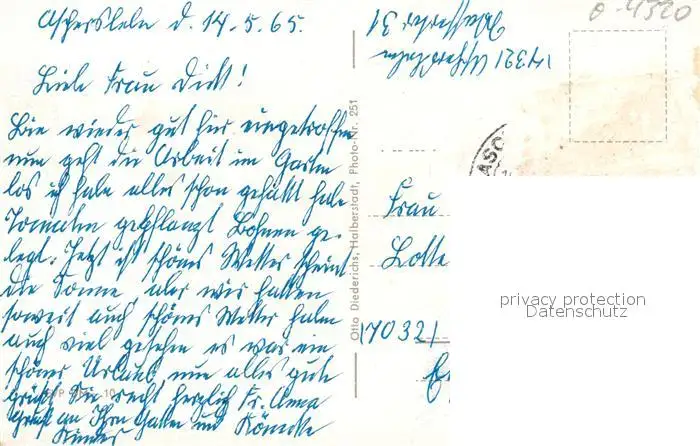 Aschersleben d. 14.5.65.
Liebe Frau Dick!
Bin wieder gut hier eingetroffen
nun geht die Arbeit im Garten
los ich habe alles schon gehackt habe
Tomaten gepflanzt Bohnen ge-
legt. Jetzt ist schönes Wetter scheint
die Sonne, aber wir hatten
soweit auch schönes Wetter haben
auch viel gesehen es war ein
schöner Urlaub, nun alles gute
grüßt Sie recht herzlich Fr. Anna
Gruß an Ihren Gatten und
Kinder
Otto Diederichs, Halberstadt, Photo-Nr. 251
4320
Aschersleben
31
ASC
Frau
Lotte
privacy protection
Datenschutz